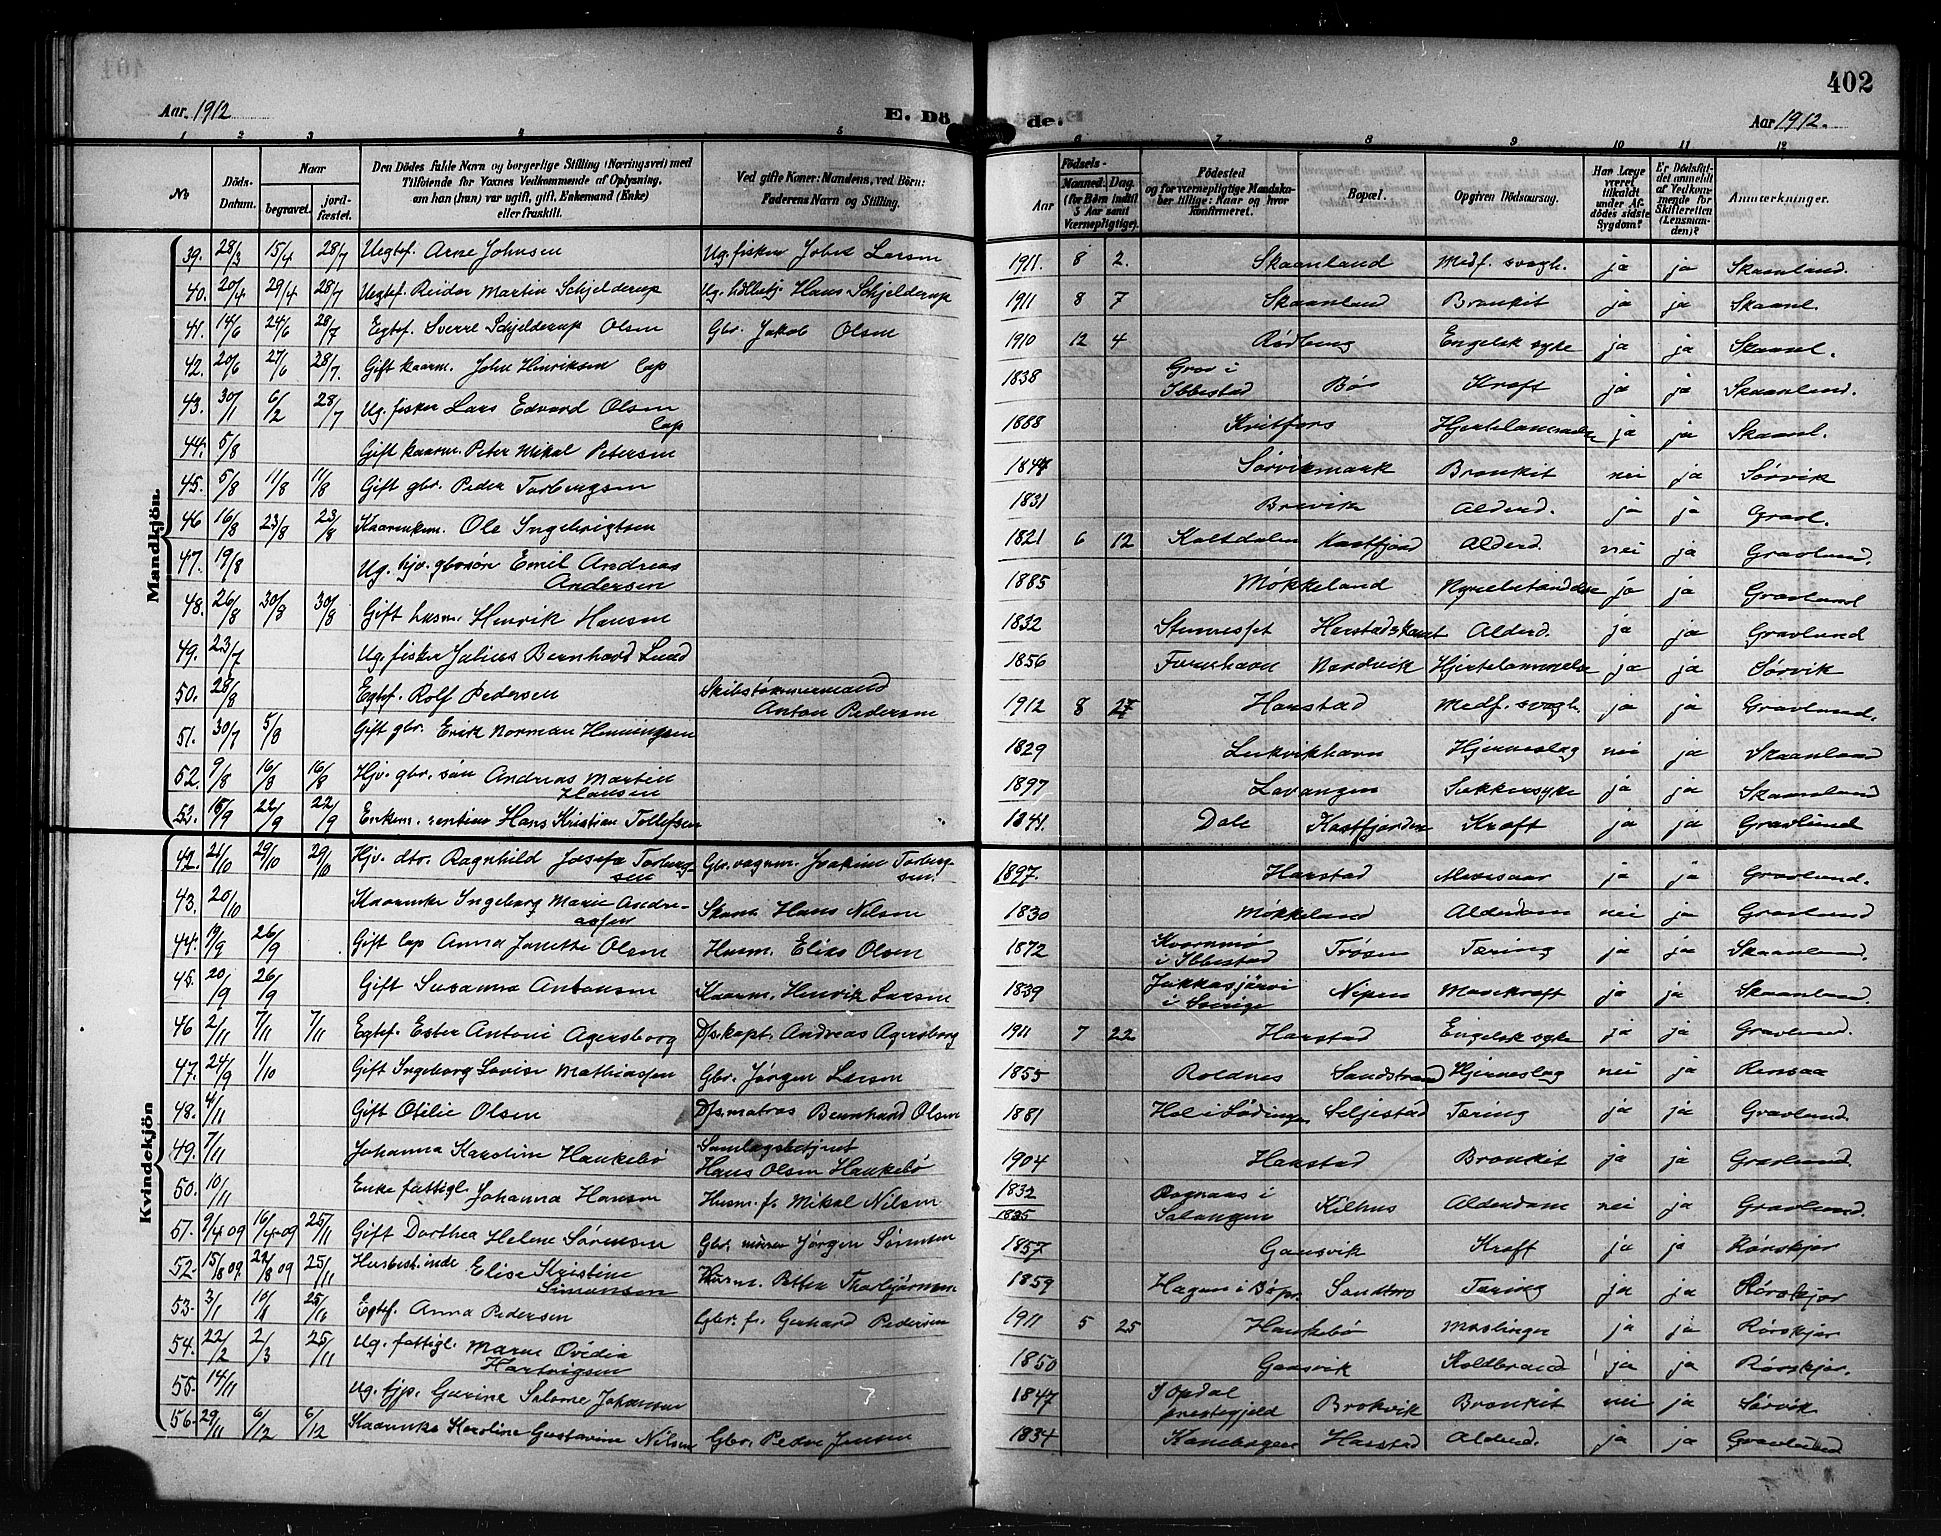 402
Aar 1912
E. Dö de.
Aar 1912.
1 2 3 4 5 6 7 8 9 10 11 12
No
Döds-Datum.
Naar
begravet.
jordfæstet.
Den Dödes fulde Navn og borgerlige Stilling (Næringsvei) med Tilföiende for Voxnes Vedkommende af Oplysning, om han (hun) var ugift, gift, Enkemand (Enke) eller fraskilt.
Ved gifte Koner: Mandens, ved Börn: Faderens Navn og Stilling.
Födsels-
Aar
Maaned. Dag.
(for Börn indtil 5 Aar samt Værnepligtige).
Födested og for værnepligtige Mandskaber tillige: Naar og hvor konfirmeret.
Bopæl.
Opgiven Dödsaarsag.
Har Læge været tilkaldt under Afdödes sidste Sygdom?
Er Dödsfaldet anmeldt af Vedkommende for Skifteretten (Lensmanden)?
Anmærkninger.
Mandkjön.
39. 28/3 15/4 28/7 Uegtef. Arne Johnsen Ug. fisker Jobet Larsen 1911. 8 2. Skaanland Medf. svagh. ja ja Skaanland.
40. 20/4 29/4 28/7 Uegtef. Reidar Martin Schjelderup Ug. Hans Schjelderup 1911 8 7 Skaanland Bronkit ja ja Skaanl.
41. 14/6 24/6 28/7 Egtef. Sverre Schjelderup Olsen Gbr. Jakob Olsen 1910 12 4 Rødberg Engelsk syke ja ja Skaanl.
42. 20/6 27/6 28/7. Gift kaarm. John Hinriksen Lap 1838 Grov i Ibbestad Bø Kræft ja ja Skaanland.
43. 30/1 6/2 28/7 Ug. fisker Lars Edvard Olsen Lap 1888 Kvitfors Hjertelammelse ja ja Skaanl.
44. 5/8 Gift kaarm. Peter Mikal Petersen 1844 Sørvikmark Bronkit nei ja Sørvik
45. 5/8 11/8 11/8 Gift gbr. Peder Torbergsen 1831 Brevik Alderd. ja ja Gravl.
46 16/8 23/8 23/8 Kaarenkem. Ole Ingebrigtsen 1821 6 12 Kaltdalen Kastfjord Alderd. nei ja Gravlund.
47. 19/8 Ug. hjv. gbrsøn Emil Andreas Andersen 1885 Møkkeland Nyrebetændelse ja ja Gravlund
48. 26/8 30/8 30/8 Gift husm. Henrik Hansen 1832 Harstadskaret Alderd. ja ja Gravlund
49. 23/7 Ug. fisker Julius Bernhard Lund 1856 Nordvik Hjertelammelse ja ja Sørvik
50. 28/8 Egtef. Rolf Pedersen Skibstømmermand Anton Pedersen 1912 8 27 Harstad Medf. svagh. ja ja Gravlund.
51. 30/7 5/8 Gift gbr. Erik Norman Henningsen 1829 Lukvikhavn Hjerneslag nei ja Skaanland
52. 9/8 16/8 16/8 Hjv. gbr. søn Andreas Martin Hansen 1897 Lavangen Sukkersyke ja ja Skaanland
53. 15/9 22/9 22/9 Enkem. rentier Hans Kristian Tollefsen 1841. Dale Kastfjorden Kræft ja ja Gravlund
Kvindekjön
42. 21/10 29/10 29/10 Hjv. dtr. Ragnhild Josefa Torbergsen Gbr. vognm. Joakim Torbergsen. 1897. Harstad ja ja Gravlund.
43. 20/10 Kaarenke Ingeborg Marie Andreassen Hans Nilsen 1830 Møkkeland Alderdom nei ja Gravlund
44. 19/9 26/9 Gift Lap Anna Janette Olsen Husm. Elias Olsen 1872 Kvernmo i Ibbestad Trøsen Tæring ja ja Skaanland.
45. 20/9 26/9 Gift Susanna Antonsen Kaarm. Henrik Larsen 1839 Jukkasjärvi i Sverige Nipen Mavekræft ja ja Skaanland.
46 2/11 7/11 7/11 Egtef. Ester Antoni Agersborg D/s.kapt. Andreas Agersborg 1911 7 22 Harstad Engelsk syke ja ja Gravlund.
47. 24/9 1/10 Gift Ingeborg Lovise Mathiassen Gbr. Jørgen Larsen 1855 Roldnes Sandstrand Hjerneslag nei ja Rensaa
48. 4/11 Gift Otilie Olsen D/s.matros Bernhard Olsen 1881 Hol i Lødingen Seljestad Tæring ja ja Gravlund.
49. 7/11 Johanna Karoline Haukebø Samlagsbetjent Hans Olsen Haukebø 1904 Harstad Bronkit ja ja Gravlund.
50. 10/11 Enke fattigl. Johanna Hansen Husm. f. Mikal Nilsen 1832 1835 Rognaas i Salangen Kilhus Alderdom nei ja Gravlund.
51. 9/4 09 16/4 09 25/11 Gift Dorthea Helene Sørensen Gbr. murer Jørgen Sørensen 1857 Gansvik Kræft ja ja Rørskjær
52. 15/8 09. 22/8 09 25/11 Husbest.inde Elise Kristine Simonsen Husm. Petter Thorbjørnsen 1859 Hagen i Bø pr. Sandtro Tæring ja ja Rørskjær
53. 3/1 10/1 25/11 Egtef. Anna Pedersen Gbr. f. Gerhard Pedersen 1911 5 25 Haukebø Meslinger ja ja Rørskjær
54. 22/2 2/3 25/11 Ug. fattigl. Maren Ovidia Hartvigsen 1850 Gansvik Koldbrand ja ja Rørskjær.
55. 14/11 Ug. tjp. Gurine Salome Johansen 1847 I Opdal prestegjeld Brokvik Bronkit nei ja Sørvik
56. 29/11 6/12 6/12 Kaarenke Karoline Gustavine Nilsen Gbr. Peder Jensen 1834 Kanebogen Harstad Alderd. ja ja Gravlund